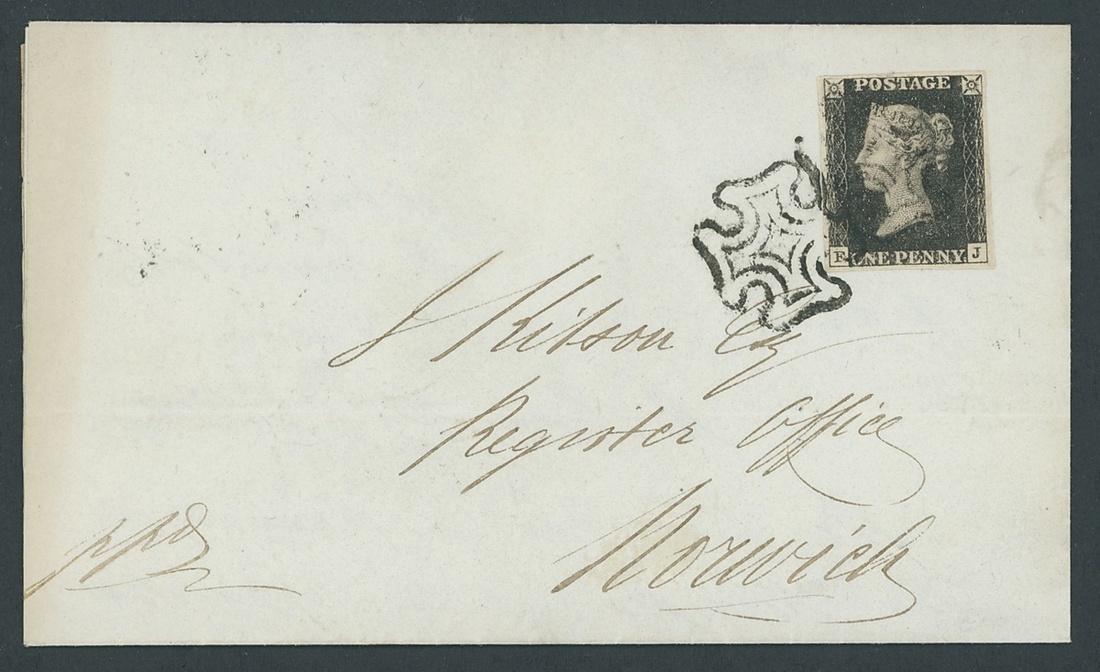 POSTAGE
F ONE PENNY J
J Kitson Esq
Register Office
Norwich
ppd